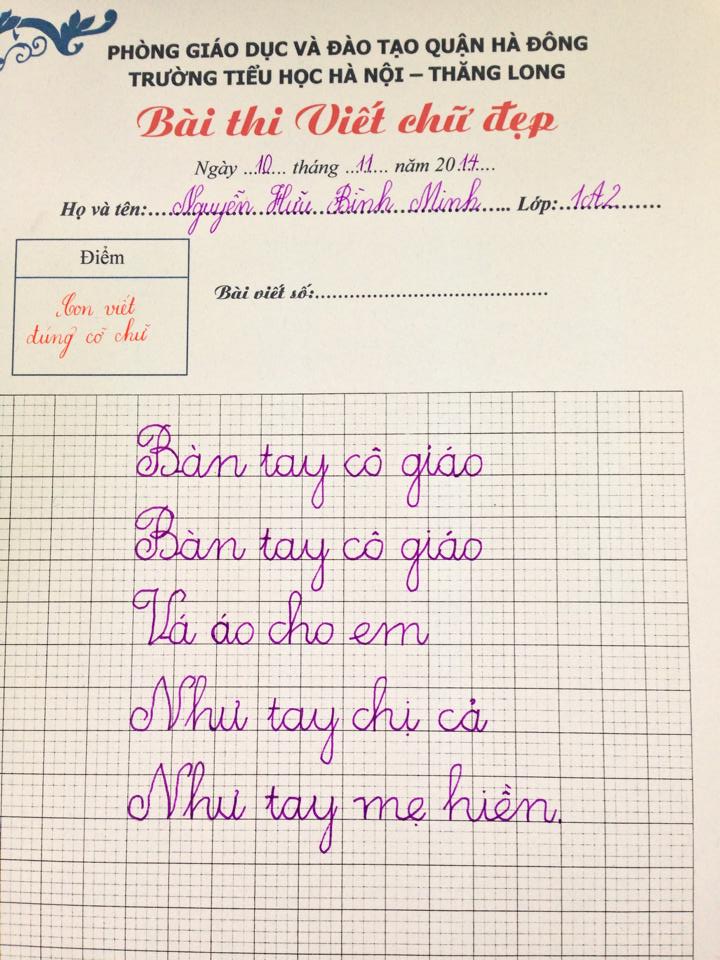 PHÒNG GIÁO DỤC VÀ ĐÀO TẠO QUẬN HÀ ĐÔNG
TRƯỜNG TIỂU HỌC HÀ NỘI – THĂNG LONG
Bài thi Viết chữ đẹp
Ngày ...10.... tháng ...11.... năm 2014....
Họ và tên:....Nguyễn Hữu Bình Minh..... Lớp:..1A2........
Điểm
Con viết
đúng cỡ chữ
Bài viết số:................................................
Bàn tay cô giáo
Bàn tay cô giáo
Vá áo cho em
Như tay chị cả
Như tay mẹ hiền.